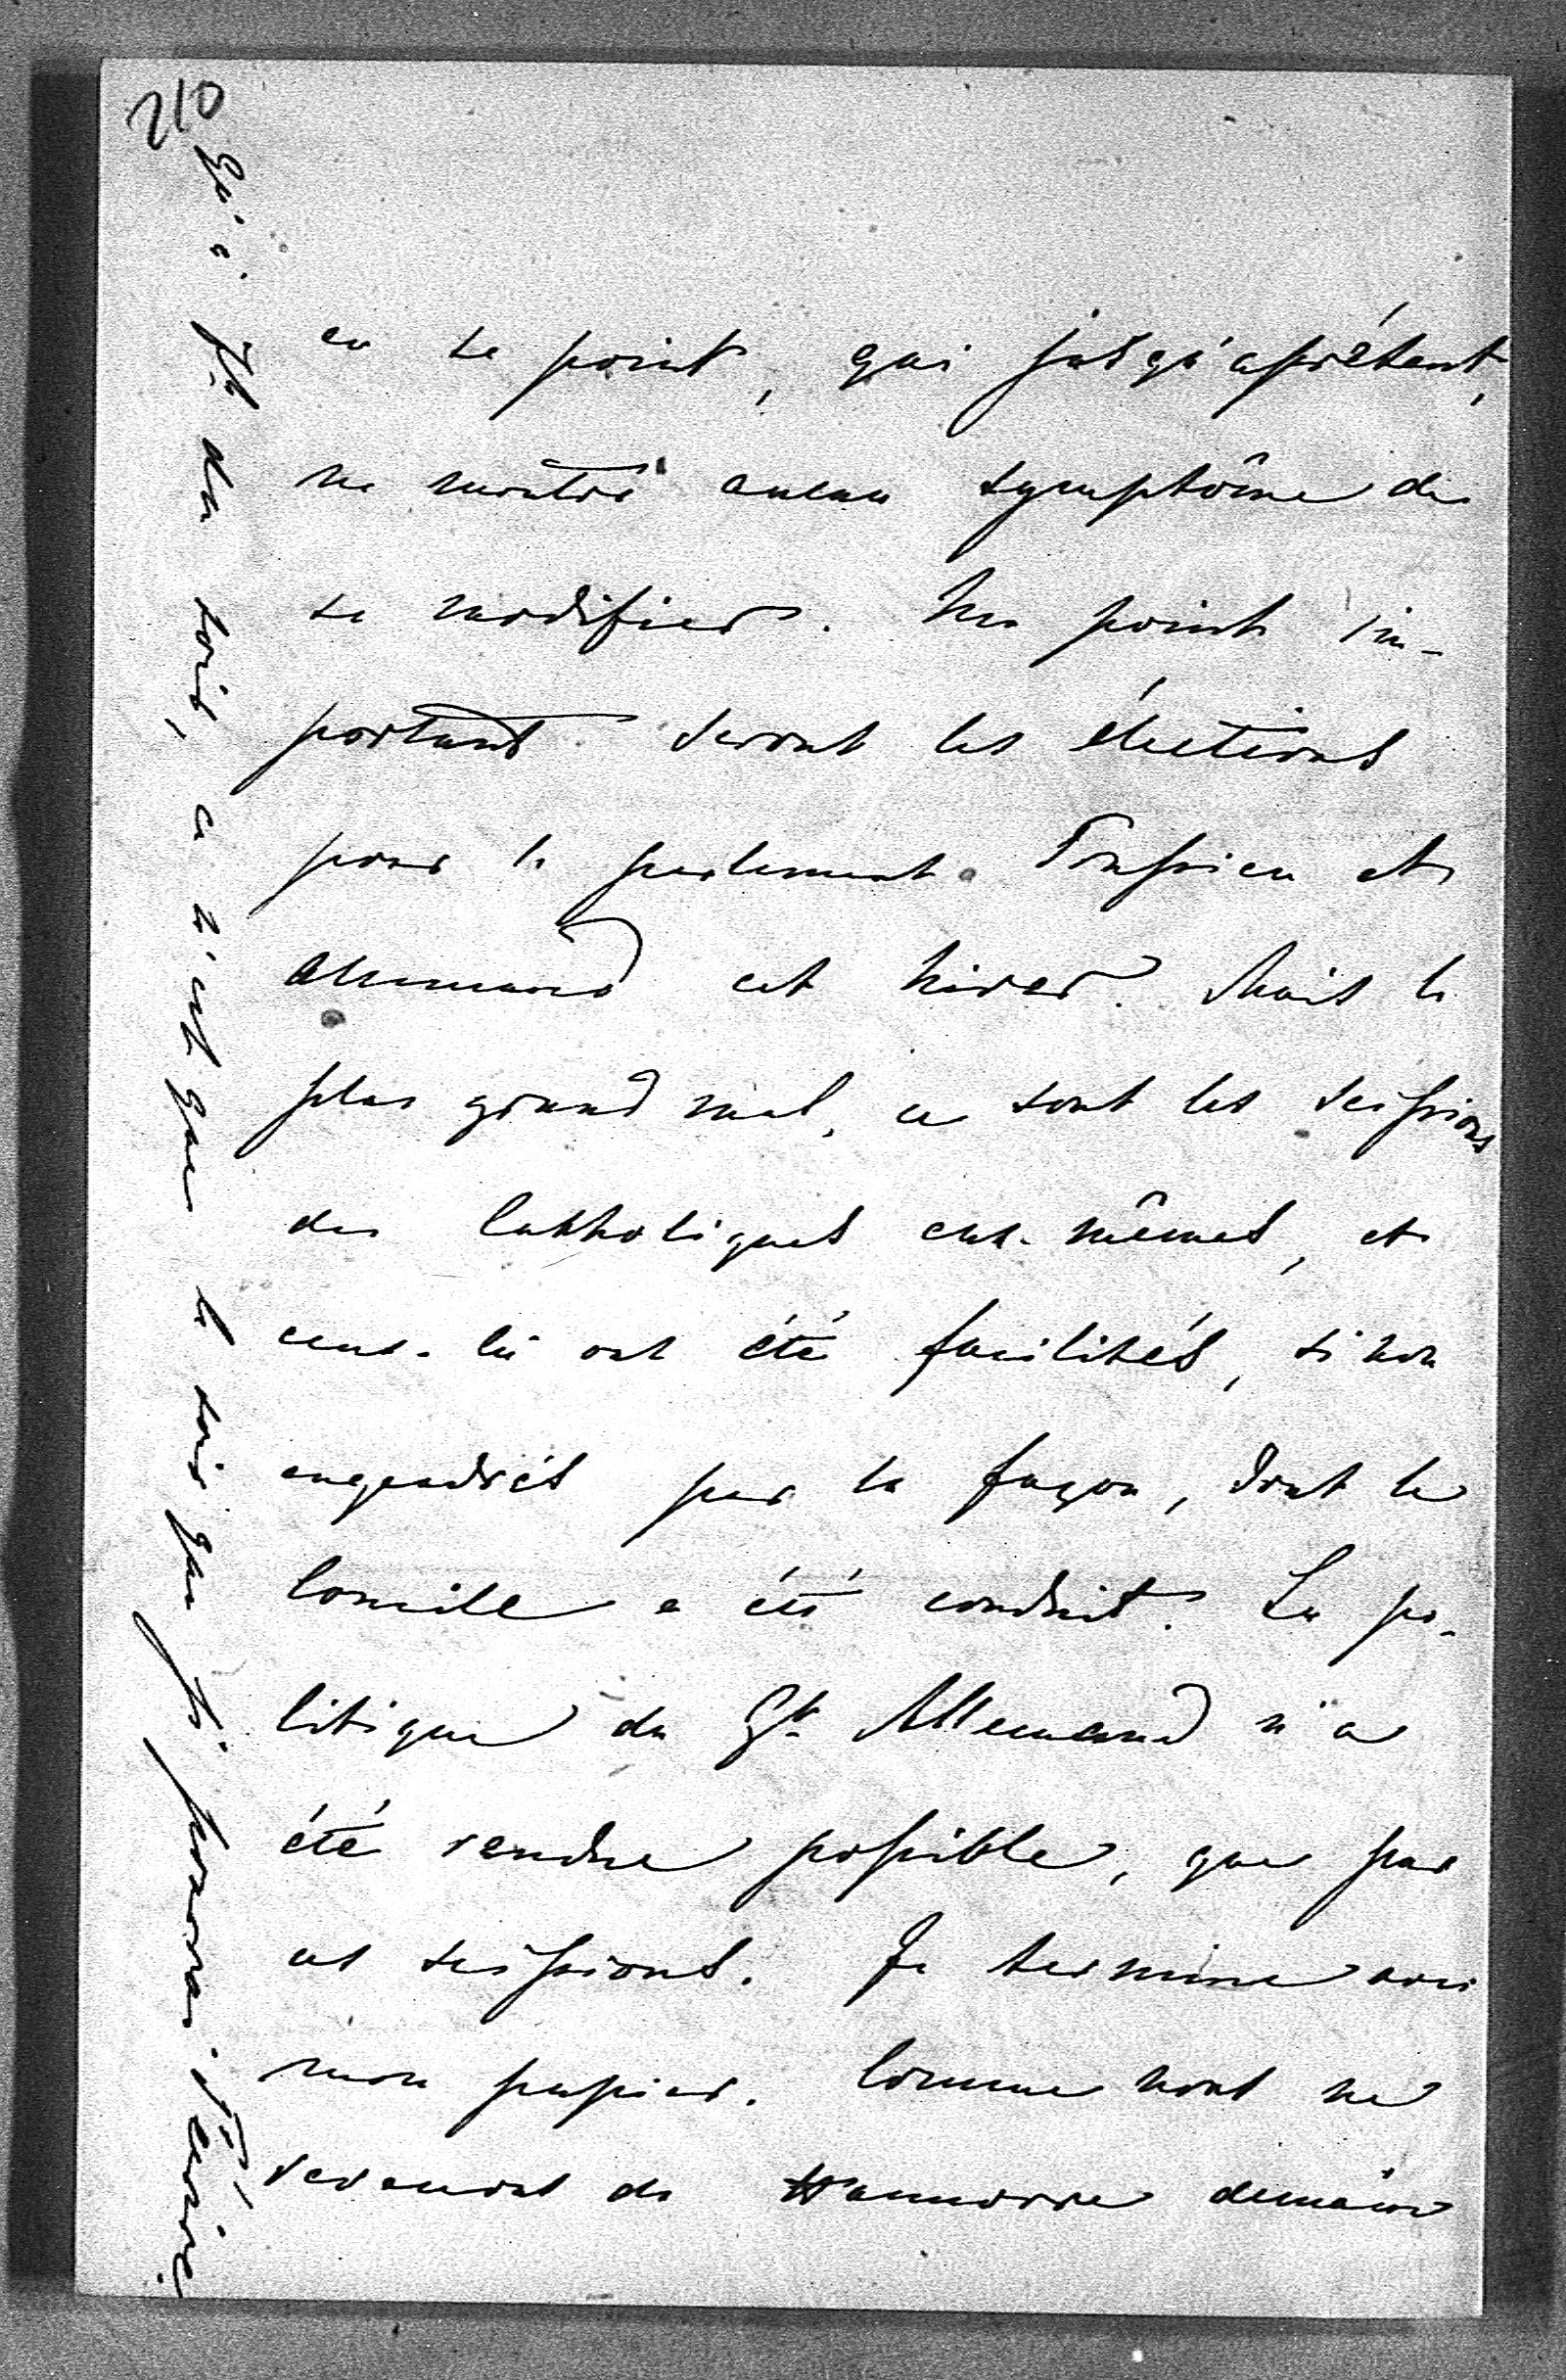 210
en ce point, qui jusqu'aprésent,
ne montre aucun symptôme de
se modifier. Un point im-
portant seront les élections
pour le parlement Prussien et
allemand cet hiver. Mais le
plus grand mal, ce sont les scissions
des Catholiques eux-mêmes, et
ceux-là ont été facilités, sinon
engendrés par la façon, dont le
Concile a été conduit. La po-
litique du Gt Allemand n'a
été rendue possible, que par
ces scissions. Je termine avec
mon papier. Comme nous ne
revenons de Hannovre demain
qu'à 7h du soir, ce n'est que le soir que je pourrai t'écrire.